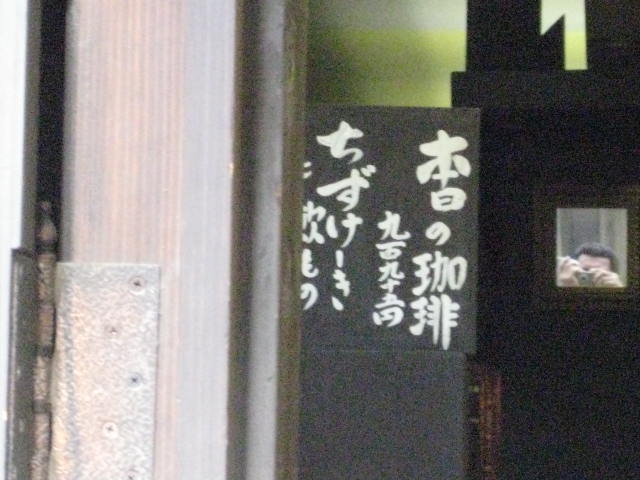 本日の珈琲
九百九十五円
ちずけーき
飲もの